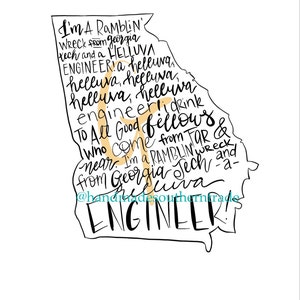 I'm A RAMBLIN'
WRECK from georgia
tech and a HELLUVA
ENGINEER! a helluva,
helluva, helluva,
helluva, helluva
engineer! i drink
TO All Good fellows
WHO come from FAR &
near I'm a RAMBLIN' WRECK
from Georgia Tech and
-a-
helluva
@handmadesoutherntrade
ENGINEER!
GT